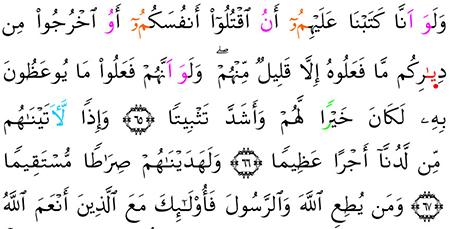 وَلَوَ اَنَّا كَتَبْنَا عَلَيْهِمُۥٓ أَنُ ٱقْتُلُوٓا۟ أَنفُسَكُمُۥٓ أَوُ ٱخْرُجُوا۟ مِن
دِيَٰرِكُم مَّا فَعَلُوهُ إِلَّا قَلِيلٌ مِّنْهُمْ ۖ وَلَوَ اَنَّهُمْ فَعَلُوا۟ مَا يُوعَظُونَ
بِهِۦ لَكَانَ خَيْرًا لَّهُمْ وَأَشَدَّ تَثْبِيتًا ٦٥ وَإِذًا لَّأٓتَيْنَٰهُم
مِّن لَّدُنَّا أَجْرًا عَظِيمًا ٦٦ وَلَهَدَيْنَٰهُمْ صِرَٰطًا مُّسْتَقِيمًا
٦٧ وَمَن يُطِعِ ٱللَّهَ وَٱلرَّسُولَ فَأُو۟لَٰٓئِكَ مَعَ ٱلَّذِينَ أَنْعَمَ ٱللَّهُ